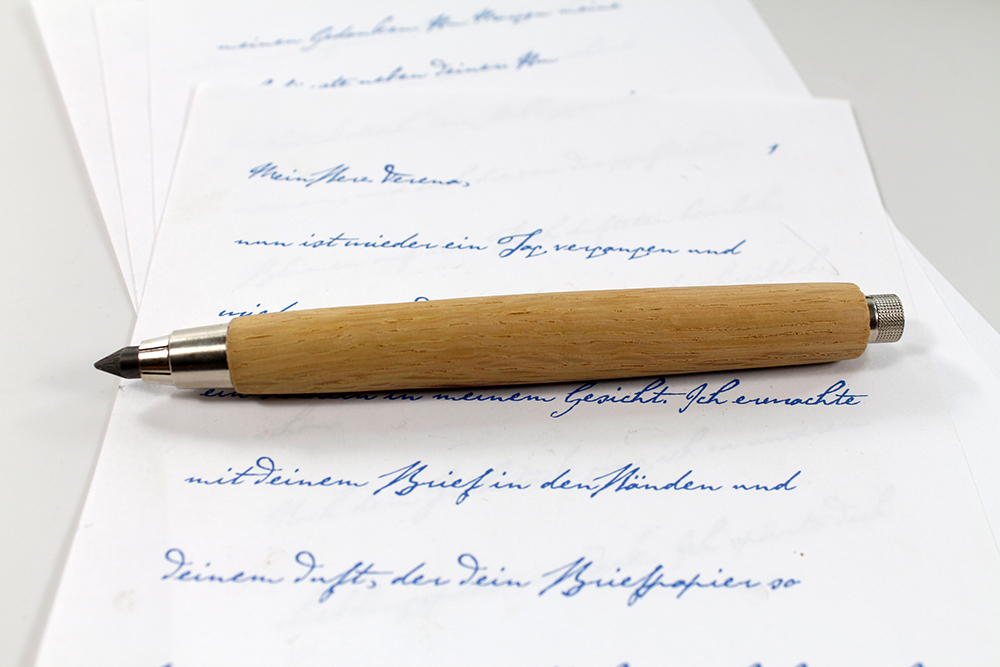 meinen Gedanken. Am Morgen meine
neben deinen Am
1
Mein Herz Verena,
nun ist wieder ein Tag vergangen und
mich
ein in meinem Gesicht. Ich erwachte
mit deinem Brief in den Händen und
deinem Duft, der dein Briefpapier so